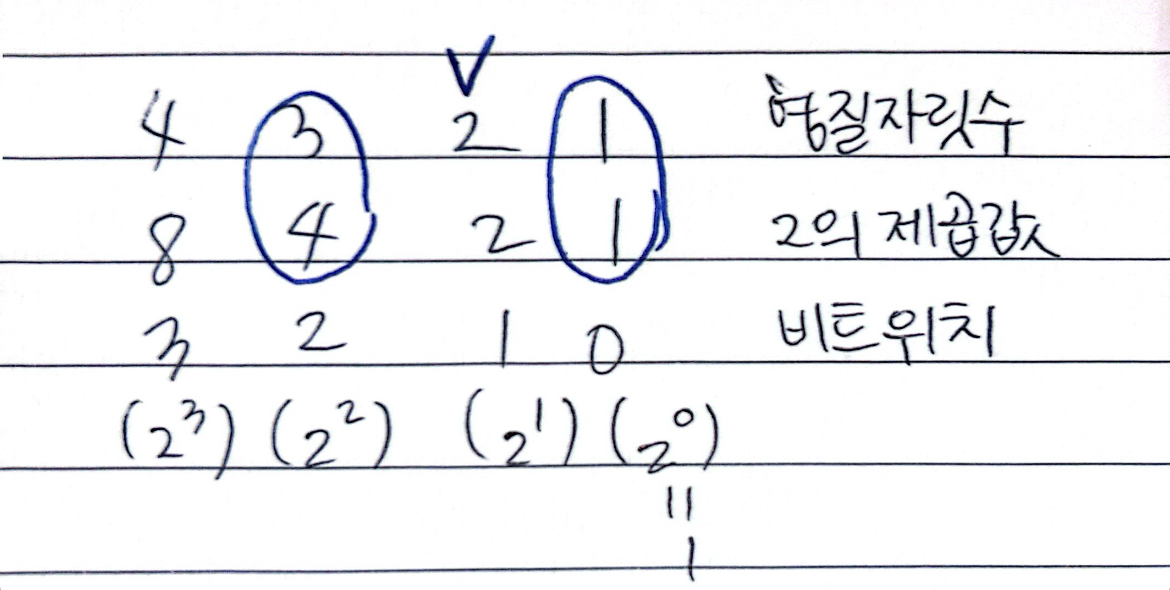 V
4 3 2 1 형질자릿수
8 4 2 1 2의 제곱값
3 2 1 0 비트위치
(2³) (2²) (2¹) (2⁰)
||
1